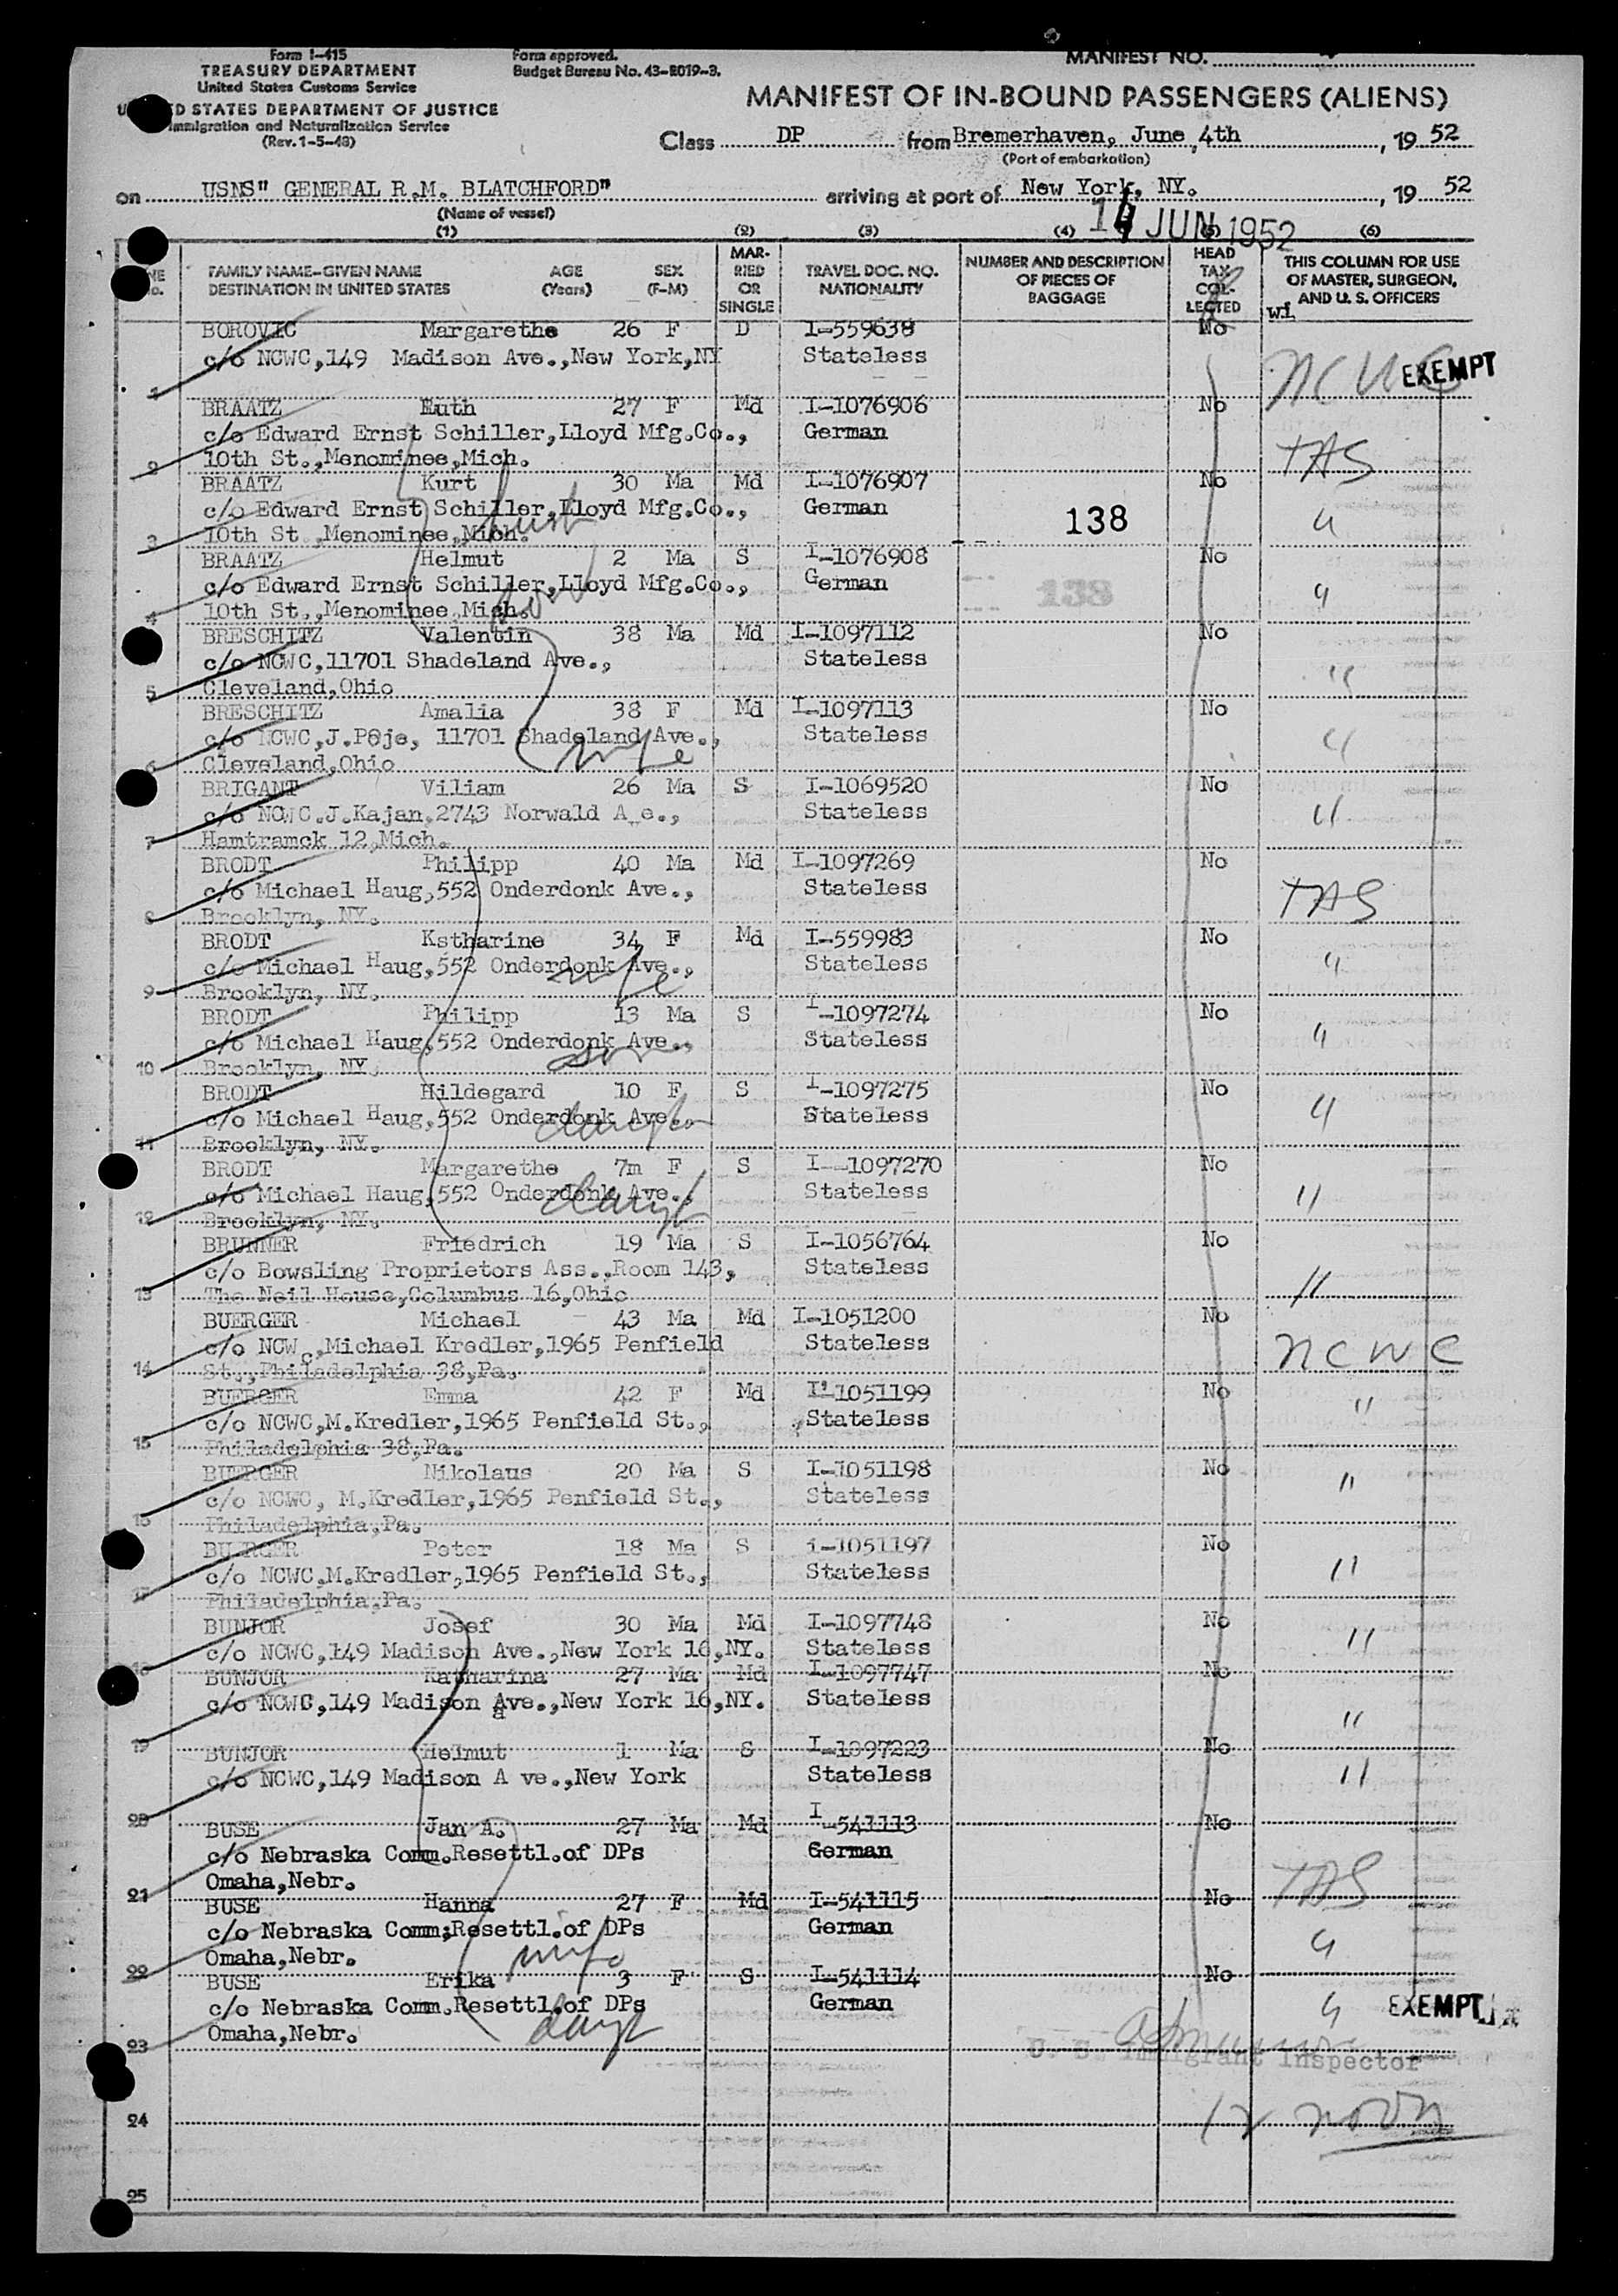 Form I-415
TREASURY DEPARTMENT
United States Customs Service
STATES DEPARTMENT OF JUSTICE
Immigration and Naturalization Service
(Rev. 1-5-48)
Form approved.
Budget Bureau No. 43-R019-3.
MANIFEST NO.
MANIFEST OF IN-BOUND PASSENGERS (ALIENS)
Class DP from Bremerhaven, June 4th, 19 52
(Port of embarkation)
on USNS" GENERAL R.M. BLATCHFORD" arriving at port of New York, NY., 19 52
(Name of vessel)
JUN 1952
(1) (2) (3) (4) (5) (6)
FAMILY NAME-GIVEN NAME AGE SEX
DESTINATION IN UNITED STATES (Years) (F-M)
MAR-RIED OR SINGLE
TRAVEL DOC. NO. NATIONALITY
NUMBER AND DESCRIPTION OF PIECES OF BAGGAGE
HEAD TAX COL-LECTED
THIS COLUMN FOR USE OF MASTER, SURGEON, AND U. S. OFFICERS
BOROVIC Margarethe 26 F D I-559638 No
c/o NCWC,149 Madison Ave.,New York,NY Stateless NCWC EXEMPT
1
BRAATZ Ruth 27 F Md I-1076906 No
c/o Edward Ernst Schiller,Lloyd Mfg.Co., German TAS
2 10th St.,Menominee,Mich.
BRAATZ Kurt 30 Ma Md I-1076907 No
c/o Edward Ernst Schiller,Lloyd Mfg.Co., German 138 "
3 10th St.,Menominee,Mich. husb
BRAATZ Helmut 2 Ma S I-1076908 No
c/o Edward Ernst Schiller,Lloyd Mfg.Co., German 138 "
4 10th St.,Menominee,Mich. son
BRESCHITZ Valentin 38 Ma Md I-1097112 No
c/o NCWC,11701 Shadeland Ave., Stateless "
5 Cleveland,Ohio
BRESCHITZ Amalia 38 F Md I-1097113 No
c/o NCWC,J.Poje, 11701 Shadeland Ave., Stateless "
6 Cleveland,Ohio wife
BRIGANT Viliam 26 Ma S I-1069520 No
c/o NCWC.J.Kajan,2743 Norwald A e., Stateless "
7 Hamtramck 12,Mich.
BRODT Philipp 40 Ma Md I-1097269 No
c/o Michael Haug,552 Onderdonk Ave., Stateless TAS
8 Brooklyn, NY.
BRODT Kstharine 34 F Md I-559983 No
c/o Michael Haug,552 Onderdonk Ave., Stateless "
9 Brooklyn, NY. wife
BRODT Philipp 13 Ma S I-1097274 No
c/o Michael Haug,552 Onderdonk Ave., Stateless "
10 Brooklyn, NY. son
BRODT Hildegard 10 F S I-1097275 No
c/o Michael Haug,552 Onderdonk Ave., Stateless "
11 Brooklyn, NY. daught
BRODT Margarethe 7m F S I--1097270 No
c/o Michael Haug,552 Onderdonk Ave., Stateless "
12 Brooklyn, NY. daugt
BRUNNER Friedrich 19 Ma S I-1056764 No
c/o Bowsling Proprietors Ass.,Room 143, Stateless "
13 The Neil House,Columbus 16,Ohio
BUERGER Michael 43 Ma Md I-1051200 No
c/o NCWC,Michael Kredler,1965 Penfield Stateless NCWC
14 St.,Philadelphia 38,Pa.
BUERGER Emma 42 F Md I-1051199 No
c/o NCWC,M.Kredler,1965 Penfield St., Stateless "
15 Philadelphia 38,Pa.
BUERGER Nikolaus 20 Ma S I-1051198 No
c/o NCWC, M.Kredler,1965 Penfield St., Stateless "
16 Philadelphia,Pa.
BUERGER Peter 18 Ma S i-1051197 No
c/o NCWC.M.Kredler,1965 Penfield St., Stateless "
17 Philadelphia,Pa.
BUNJOR Josef 30 Ma Md I-1097748 No
18 c/o NCWC,149 Madison Ave.,New York 16,NY. Stateless "
BUNJOR Katharina 27 Ma Md I-1097747 No
c/o NCWC,149 Madison Ave.,New York 16,NY. Stateless "
19
BUNJOR Helmut 1 Ma S I-1097223 No
c/o NCWC,149 Madison A ve.,New York Stateless "
20
BUSE Jan A. 27 Ma Md I-541113 No
c/o Nebraska Comm.Resettl.of DPs German TAS
21 Omaha,Nebr.
BUSE Hanna 27 F Md I-541115 No
c/o Nebraska Comm;Resettl.of DPs German "
22 Omaha,Nebr. wife
BUSE Erika 3 F S I-541114 No
c/o Nebraska Comm.Resettl.of DPs German " EXEMPT
23 Omaha,Nebr. daugt
U. S. Immigrant Inspector
24 12 noon
25